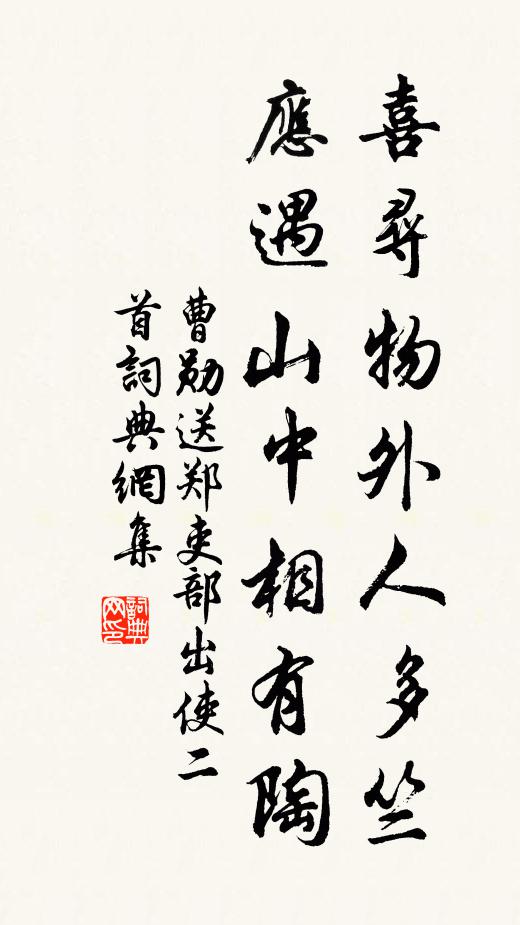 喜尋物外人多竺
應遇山中相有陶
曹勋送郑吏部出使二
首詞典網集
詞典
网印